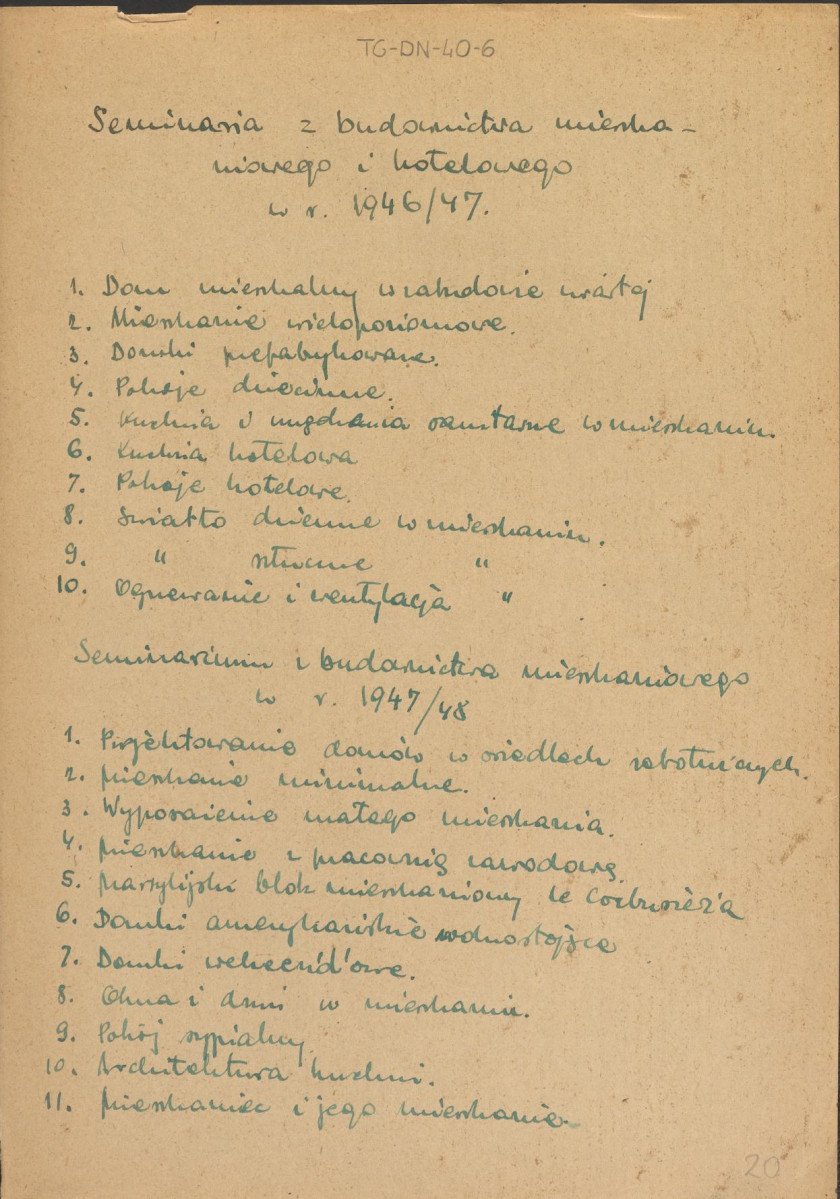 TG-DN-40-6
Seminaria z budownictwa mieszka-
niowego i hotelowego
w r. 1946/47.
1. Dom mieszkalny w zabudowie zwartej
2. Mieszkanie wielopoziomowe.
3. Domki prefabrykowane.
4. Pokoje dziecinne.
5. Kuchnia i urządzenia sanitarne w mieszkaniu.
6. Kuchnia hotelowa
7. Pokoje hotelowe.
8. Światło dzienne w mieszkaniu.
9. " sztuczne "
10. Ogrzewanie i wentylacja "
Seminarium z budownictwa mieszkaniowego
w r. 1947/48
1. Projektowanie domów w osiedlach robotniczych.
2. Mieszkanie minimalne.
3. Wyposażenie małego mieszkania.
4. Mieszkanie z pracownią zawodową.
5. Marsylijski blok mieszkaniowy le Corbusier'a
6. Domki amerykańskie wolnostojące
7. Domki weekend'owe.
8. Okna i drzwi w mieszkaniu.
9. Pokój sypialny
10. Architektura kuchni.
11. Mieszkaniec i jego mieszkanie.
20